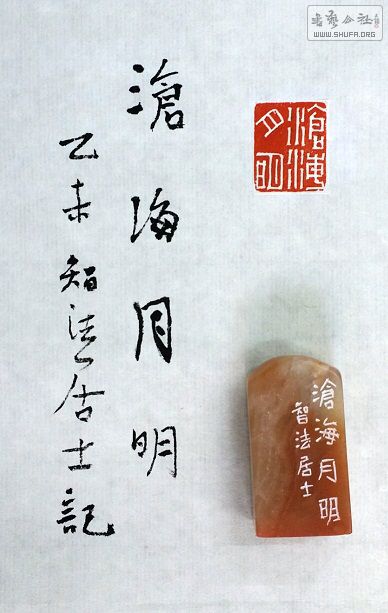 滄海月明
乙未智法居士記
滄海月明
滄海月明
智法居士
WWW.SHUFA.ORG